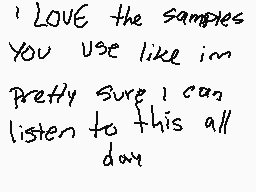 I LOVE the samples
you use like im
pretty sure I can
listen to this all
day